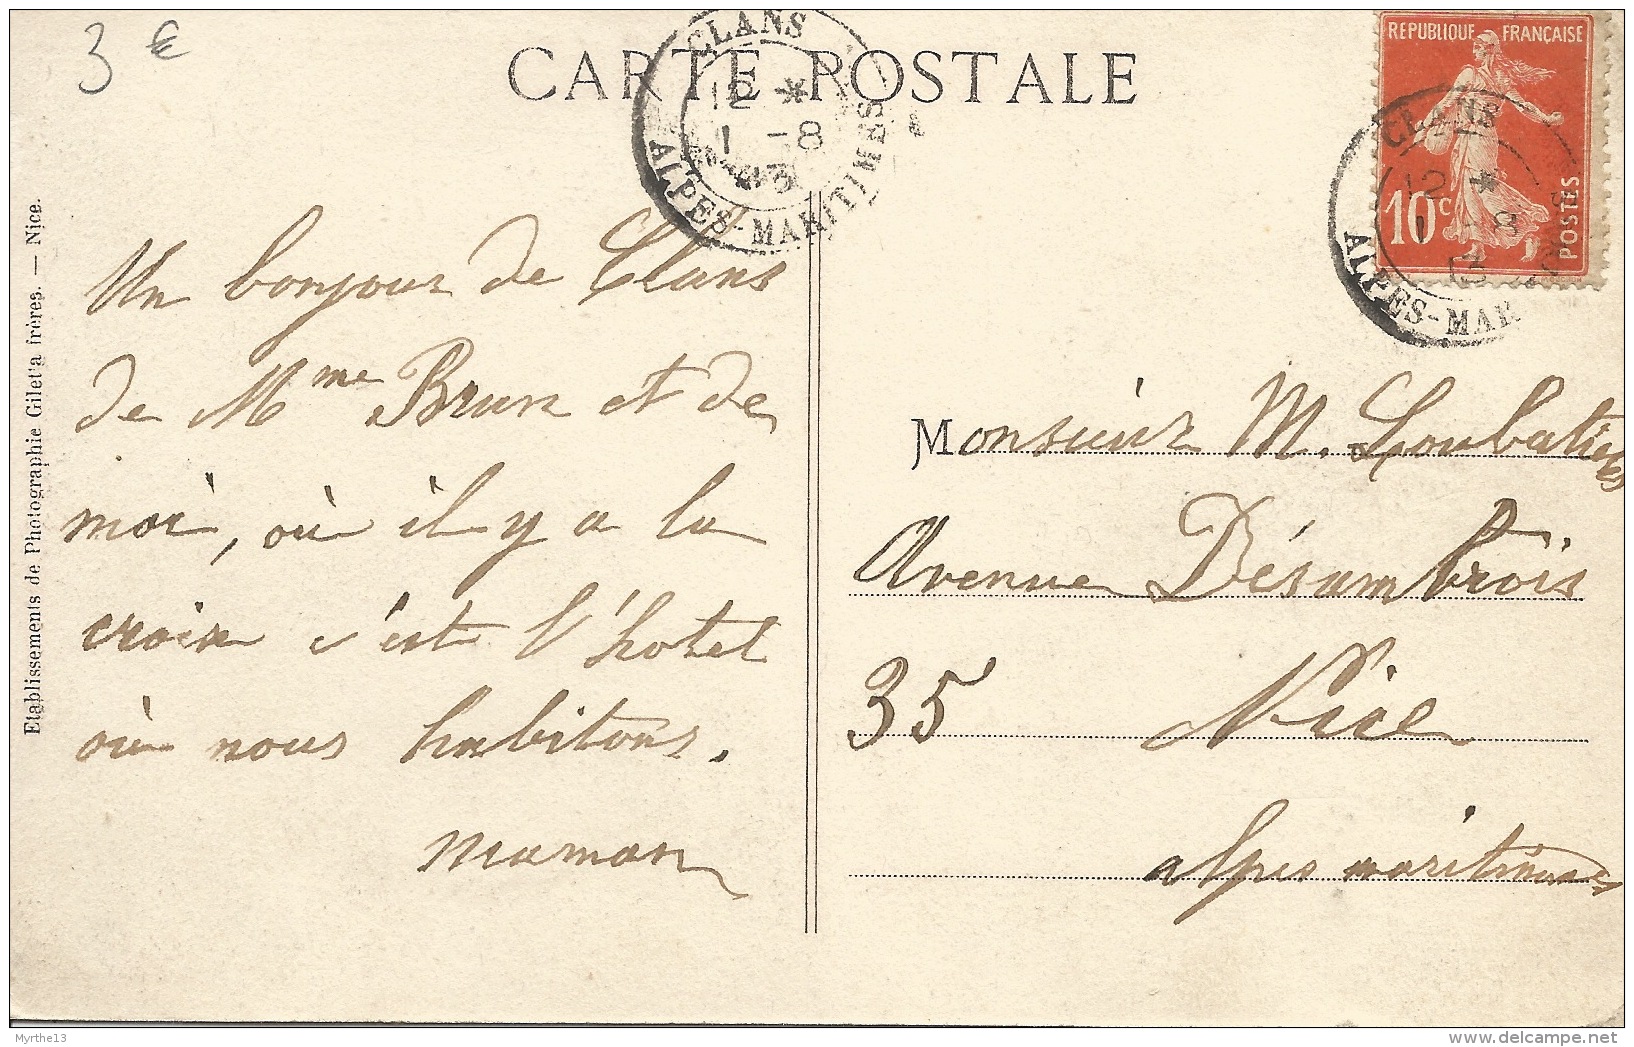 3 €
CARTE POSTALE
CLANS
12 *
1 -8
13
ALPES-MARITIMES
REPUBLIQUE FRANÇAISE
10c
POSTES
CLANS
12 *
1 8
13
ALPES-MAR
Etablissements de Photographie Gilet'a frères. — Nice.
Un bonjour de Clans
de Mme Brun et de
moi, où il y a la
croix c'est l'hotel
où nous habitons.
maman
Monsieur M. Loubatières
Avenue Désambrois
35 Nice
alpes maritimes
Myrthe13
delcampe.net